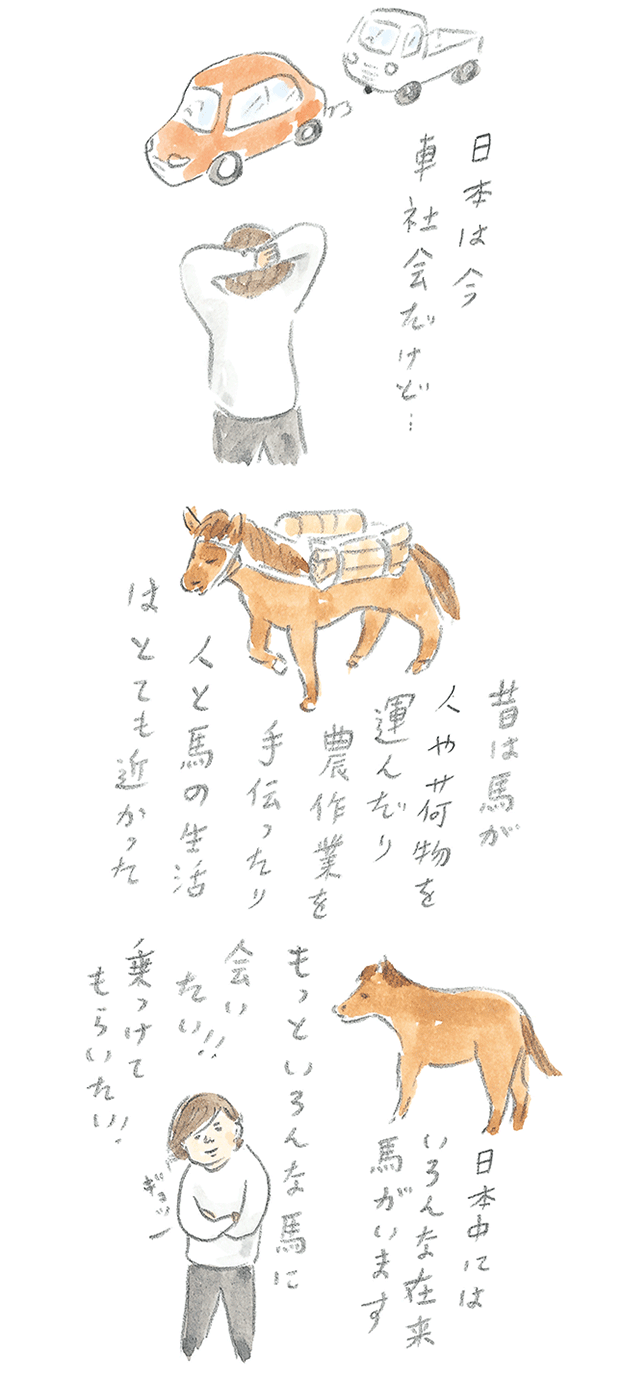 日本は今
車社会だけど…
昔は馬が
人や荷物を
運んだり
農作業を
手伝ったり
人と馬の生活
はとても近かった
日本中には
いろんな在来
馬がいます
もっといろんな馬に
会い
たい!!
乗っけて
もらいたい!!
ギュッ